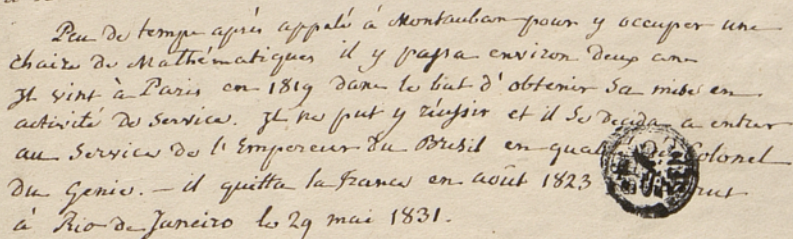 Peu de temps après appelé à Montauban pour y occuper une
chaire de Mathématiques il y passa environ deux ans
Il vint à Paris en 1819 dans le but d'obtenir sa mise en
activité de service. Il ne put y réussir et il se décida a entrer
au service de l'Empereur du Bresil en qualité de Colonel
du Genie. – il quitta la France en août 1823
à Rio de Janeiro le 29 mai 1831.